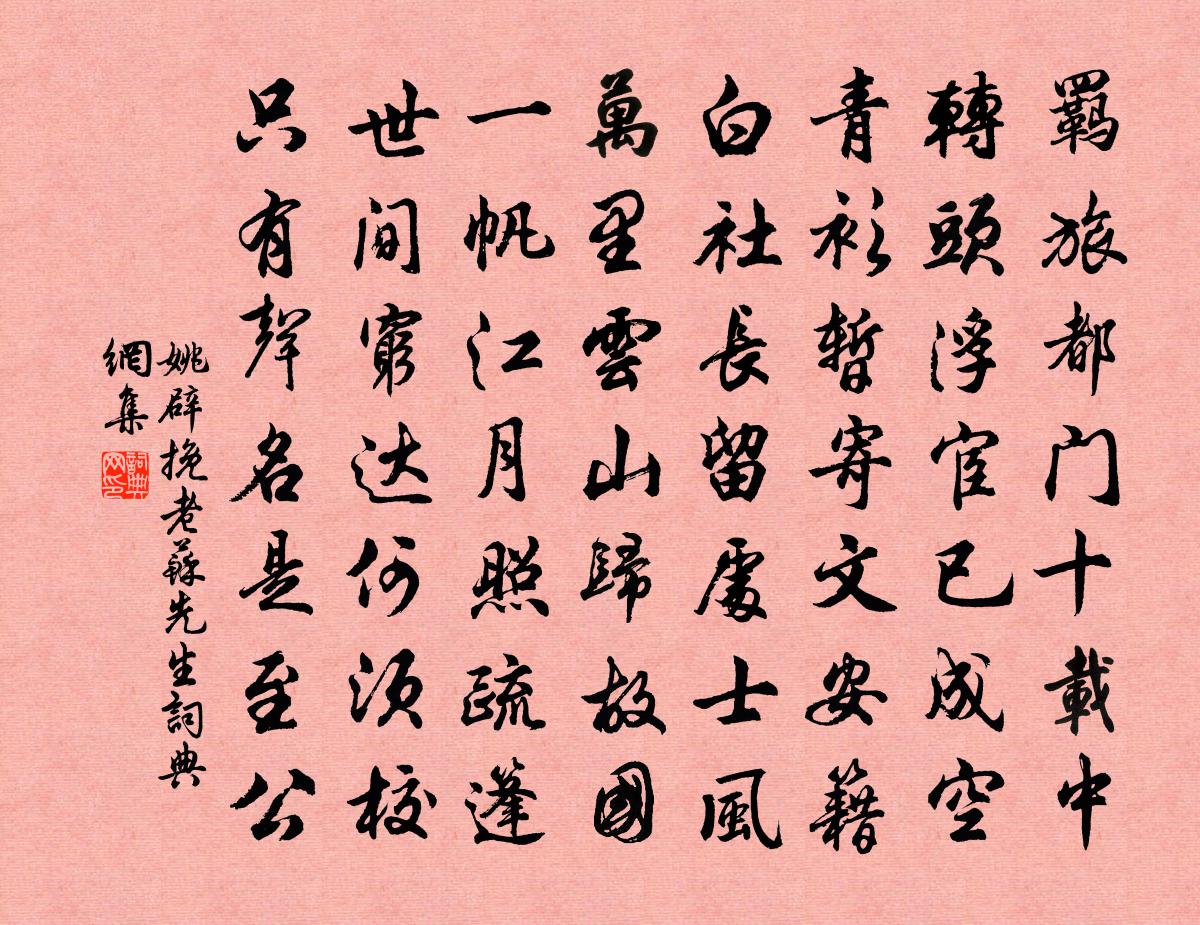 羈旅都门十載中
轉頭浮宦已成空
青衫暫寄文安籍
白社長留處士風
萬里雲山歸故國
一帆江月照疏蓬
世間窮达何須校
只有聲名是至公
姚辟挽老蘇先生詞典
網集
詞典
网印